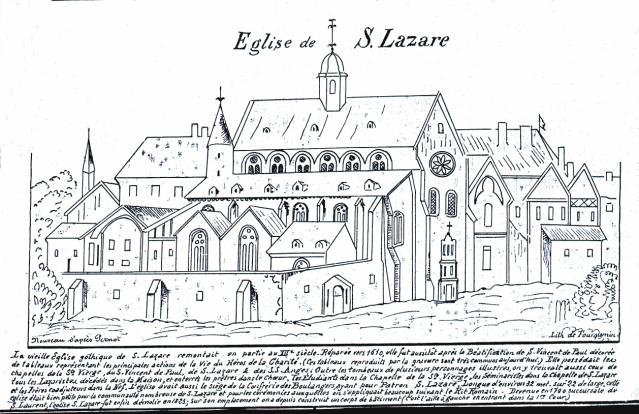 Eglise de S. Lazare
Nouveau d'après Pernot
Lith. de Pourgignin
La vieille Église gothique de S. Lazare remontait en partie au XIIe siècle. Réparée vers 1610, elle fut aussitôt après la Béatification de S. Vincent de Paul décorée
de tableaux représentant les principales actions de la Vie du Héros de la Charité. (Ces tableaux reproduits par la gravure sont très communs aujourd'hui.) Elle possédait les
chapelles de la Ste Vierge, de S. Vincent de Paul, de S. Lazare & des SS. Anges. Outre les tombeaux de plusieurs personnages illustres, on y trouvait aussi ceux de
tous les Lazaristes décédés dans la Maison, et enterrés les prêtres dans le Chœur, les Etudiants dans la Chapelle de la Ste Vierge, les Séminaristes dans la Chapelle de S. Lazare
et les Frères coadjuteurs dans la Nef. L'église avait aussi le siège de la Confrérie des Boulangers ayant pour Patron S. Lazare. Longue d'environ 32 mèt. sur 22 de large, cette
église était bien petite pour la communauté nombreuse de S. Lazare et pour les cérémonies auxquelles on s'appliquait beaucoup suivant le Rit Romain. Devenue en succursale de
S. Laurent, l'église S. Lazare fut enfin démolie en 1823; sur son emplacement on a depuis construit un corps de bâtiment (C'est l'aile gauche en entrant dans la 1re Cour.)